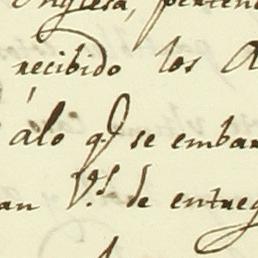 Inglesa, perten
recibido los A
álo q.e se embar
an V.s de entreg